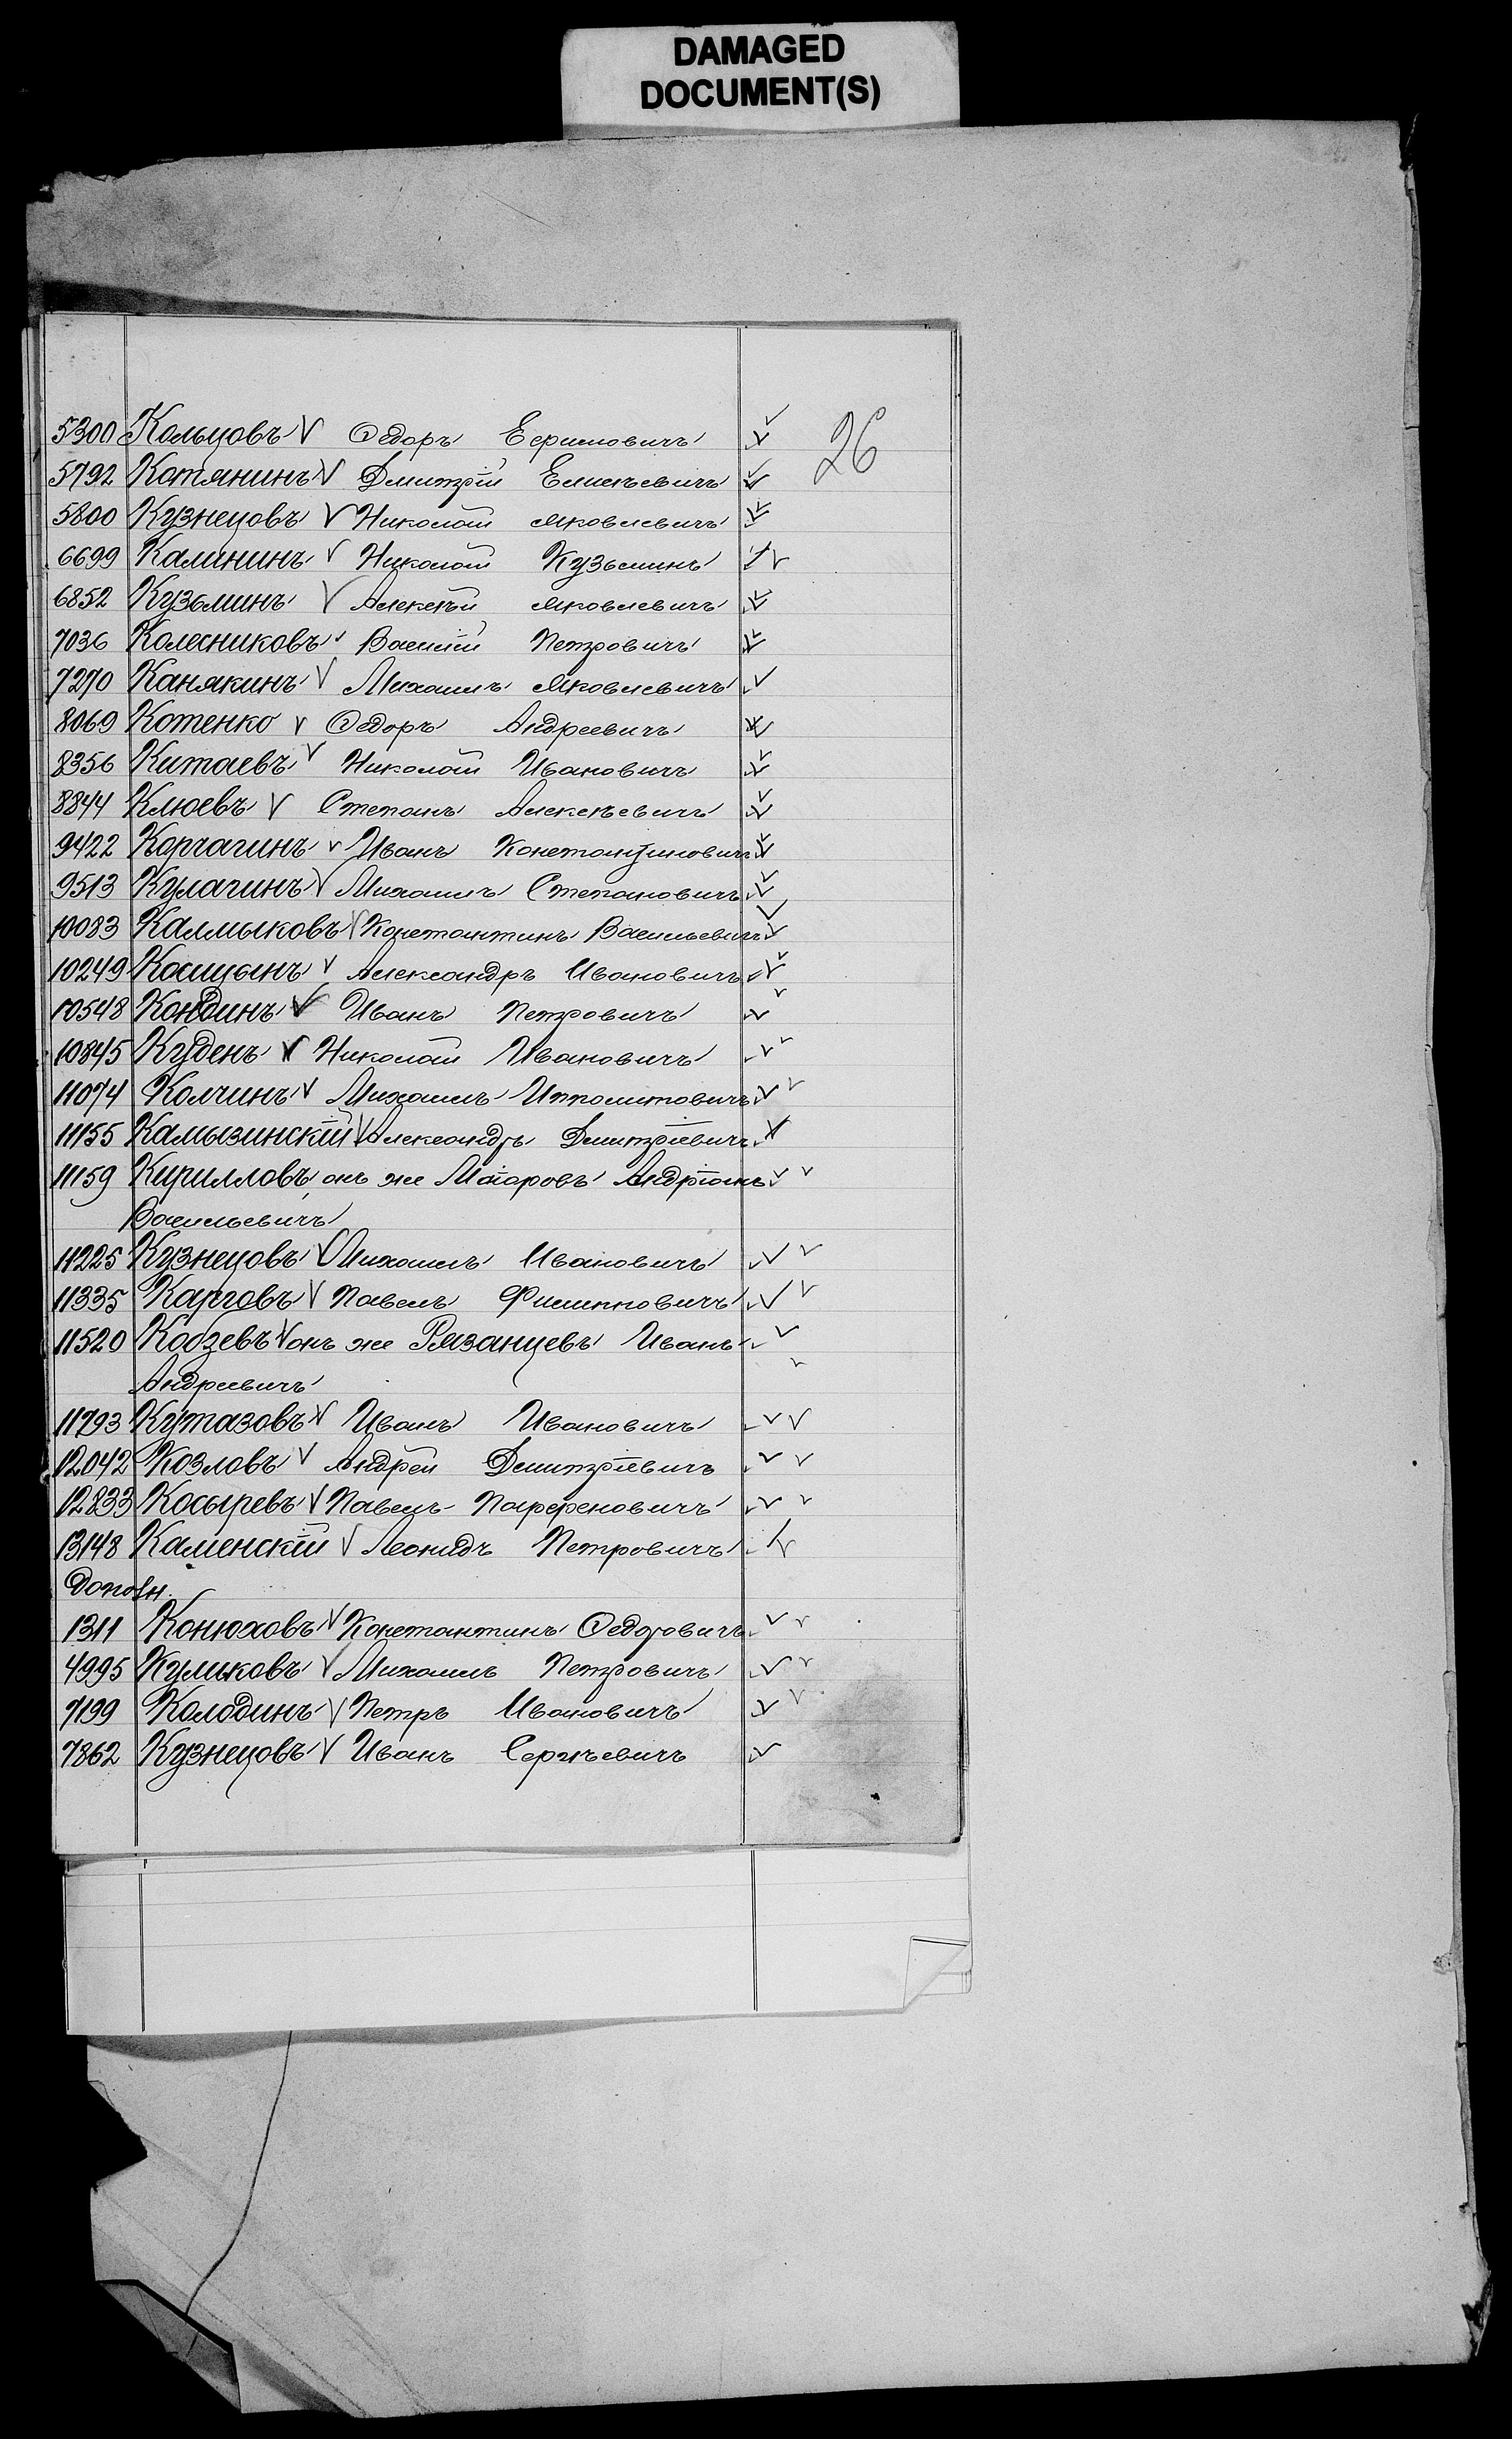 DAMAGED
DOCUMENT(S)
26
5300 Кольцовъ Ѳедоръ Ефимовичъ
5792 Котянинъ Дмитрій Елисѣевичъ
5800 Кузнецовъ Николай Яковлевичъ
6699 Калининъ Николай Кузьминъ
6852 Кузьминъ Алексѣй Яковлевичъ
7036 Колесниковъ Василій Петровичъ
7270 Канякинъ Михаилъ Яковлевичъ
8069 Котенко Ѳедоръ Андреевичъ
8356 Китаевъ Николай Ивановичъ
8844 Клюевъ Степанъ Алексѣевичъ
9422 Корчагинъ Иванъ Константиновичъ
9513 Кулагинъ Михаилъ Степановичъ
10083 Калмыковъ Константинъ Васильевичъ
10249 Косицынъ Александръ Ивановичъ
10548 Кондинъ Иванъ Петровичъ
10845 Кудень Николай Ивановичъ
11074 Колчинъ Михаилъ Ипполитовичъ
11155 Камызинскій Александръ Дмитріевичъ
11159 Кирилловъ, онъ же Маіоровъ Андріанъ
Васильевичъ
11225 Кузнецовъ Михаилъ Ивановичъ
11335 Карговъ Павелъ Филипповичъ
11520 Кобзевъ онъ же Рязанцевъ Иванъ
Андреевичъ
11793 Кутазовъ Иванъ Ивановичъ
12042 Козловъ Андрей Дмитріевичъ
12833 Косыревъ Павелъ Парфеновичъ
13148 Каменскій Леонидъ Петровичъ
Дополн.
1311 Конюховъ Константинъ Ѳедоровичъ
4995 Куликовъ Михаилъ Петровичъ
7199 Колодинъ Петръ Ивановичъ
7862 Кузнецовъ Иванъ Сергѣевичъ